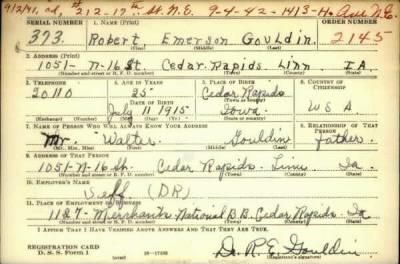 9/2/41, ad, # 212-17th St. N.E. 9-4-42-1413-H Ave N.E.
SERIAL NUMBER 1. NAME (Print) ORDER NUMBER
373 Robert Emerson Gouldin 2145
(First) (Middle) (Last)
2. ADDRESS (Print)
1051-N-16 St. Cedar Rapids Linn IA.
(Number and street or R. F. D. number) (Town) (County) (State)
3. TELEPHONE 4. AGE IN YEARS 5. PLACE OF BIRTH 6. COUNTRY OF CITIZENSHIP
20110 25 Cedar Rapids
DATE OF BIRTH (Town or county)
July 11 1915 Iowa U S A
(Mo.) (Day) (Yr.) (State or country)
7. NAME OF PERSON WHO WILL ALWAYS KNOW YOUR ADDRESS 8. RELATIONSHIP OF THAT PERSON
Mr. Walter Gouldin father
(Mr., Mrs., Miss) (First) (Middle) (Last)
9. ADDRESS OF THAT PERSON
1051-N-16 St. Cedar Rapids Linn Ia
(Number and street or R. F. D. number) (Town) (County) (State)
10. EMPLOYER'S NAME
Self (DR)
11. PLACE OF EMPLOYMENT OR BUSINESS
1127-Merchants National B.B. Cedar Rapids Ia
(Number and street or R. F. D. number) (Town) (County) (State)
I AFFIRM THAT I HAVE VERIFIED ABOVE ANSWERS AND THAT THEY ARE TRUE.
REGISTRATION CARD
D. S. S. Form 1 16-17105 Dr. R. E. Gouldin
(Registrant's signature)